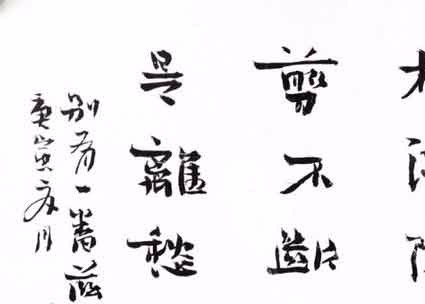 剪不斷
是離愁
别有一番滋
庚寅月